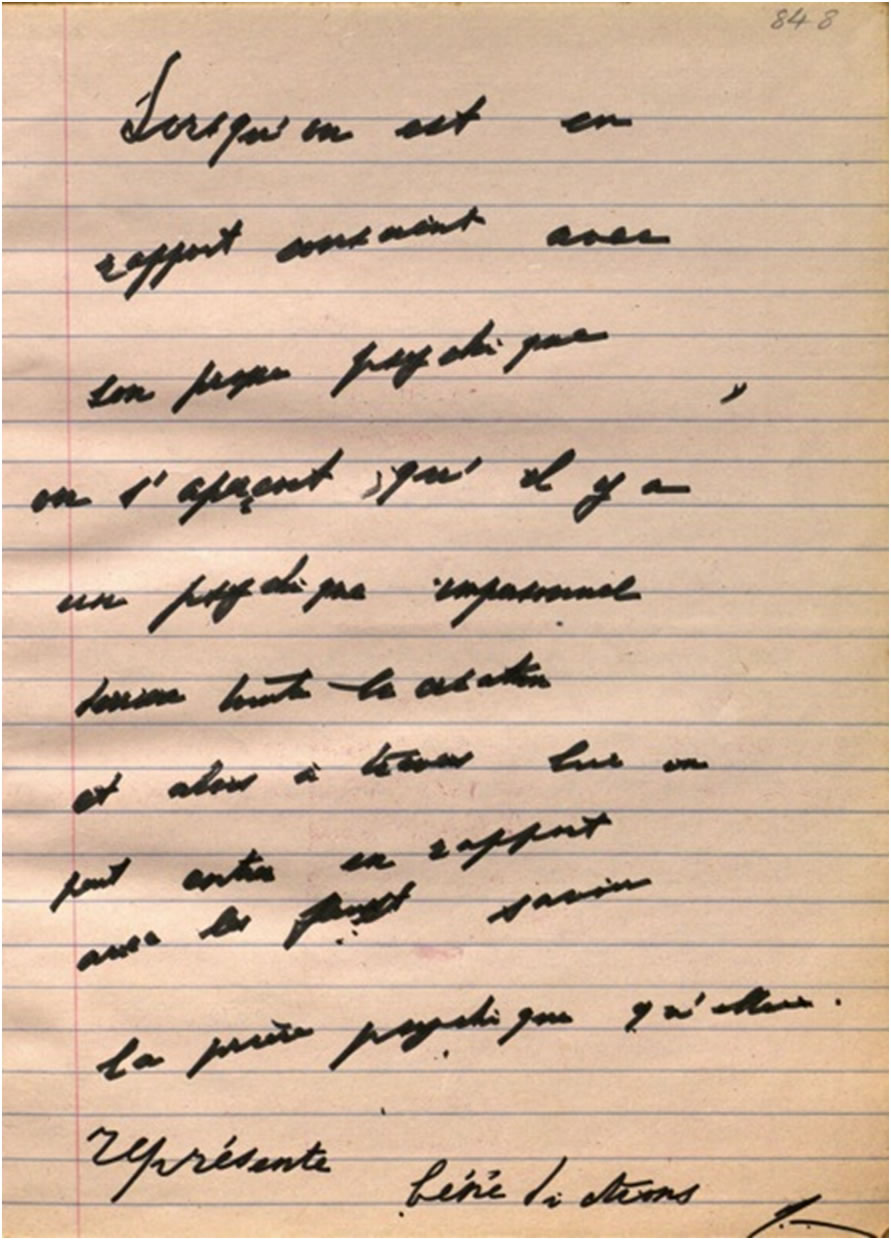 848
Lorsqu'on est en
rapport conscient avec
son propre psychique ,
on s'aperçoit qu'il y a
un psychique impersonnel
derrière toute la création
et alors à travers lui on
peut entrer en rapport
avec les savoir
la prière psychique qu'elles
représente
bénédictions